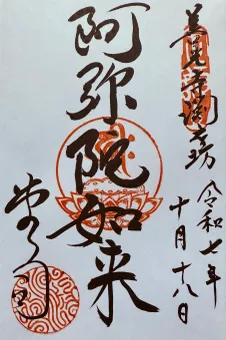 善光寺淵之坊
阿弥陀如来
令和七年
十月十八日
堂司